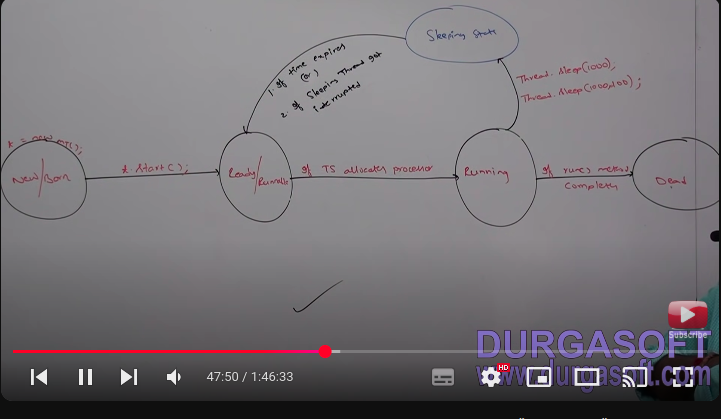 Sleeping State
1. If time expires
(or)
2. If Sleeping Thread got
interrupted
Thread.sleep(1000);
Thread.sleep(1000,100);
t = new MT();
New/Born
t.start();
Ready/
Runnable
If TS allocates processor
Running
If run() method
Completes
Dead
Subscribe
DURGASOFT
www.durgasoft.com
47:50 / 1:46:33
HD